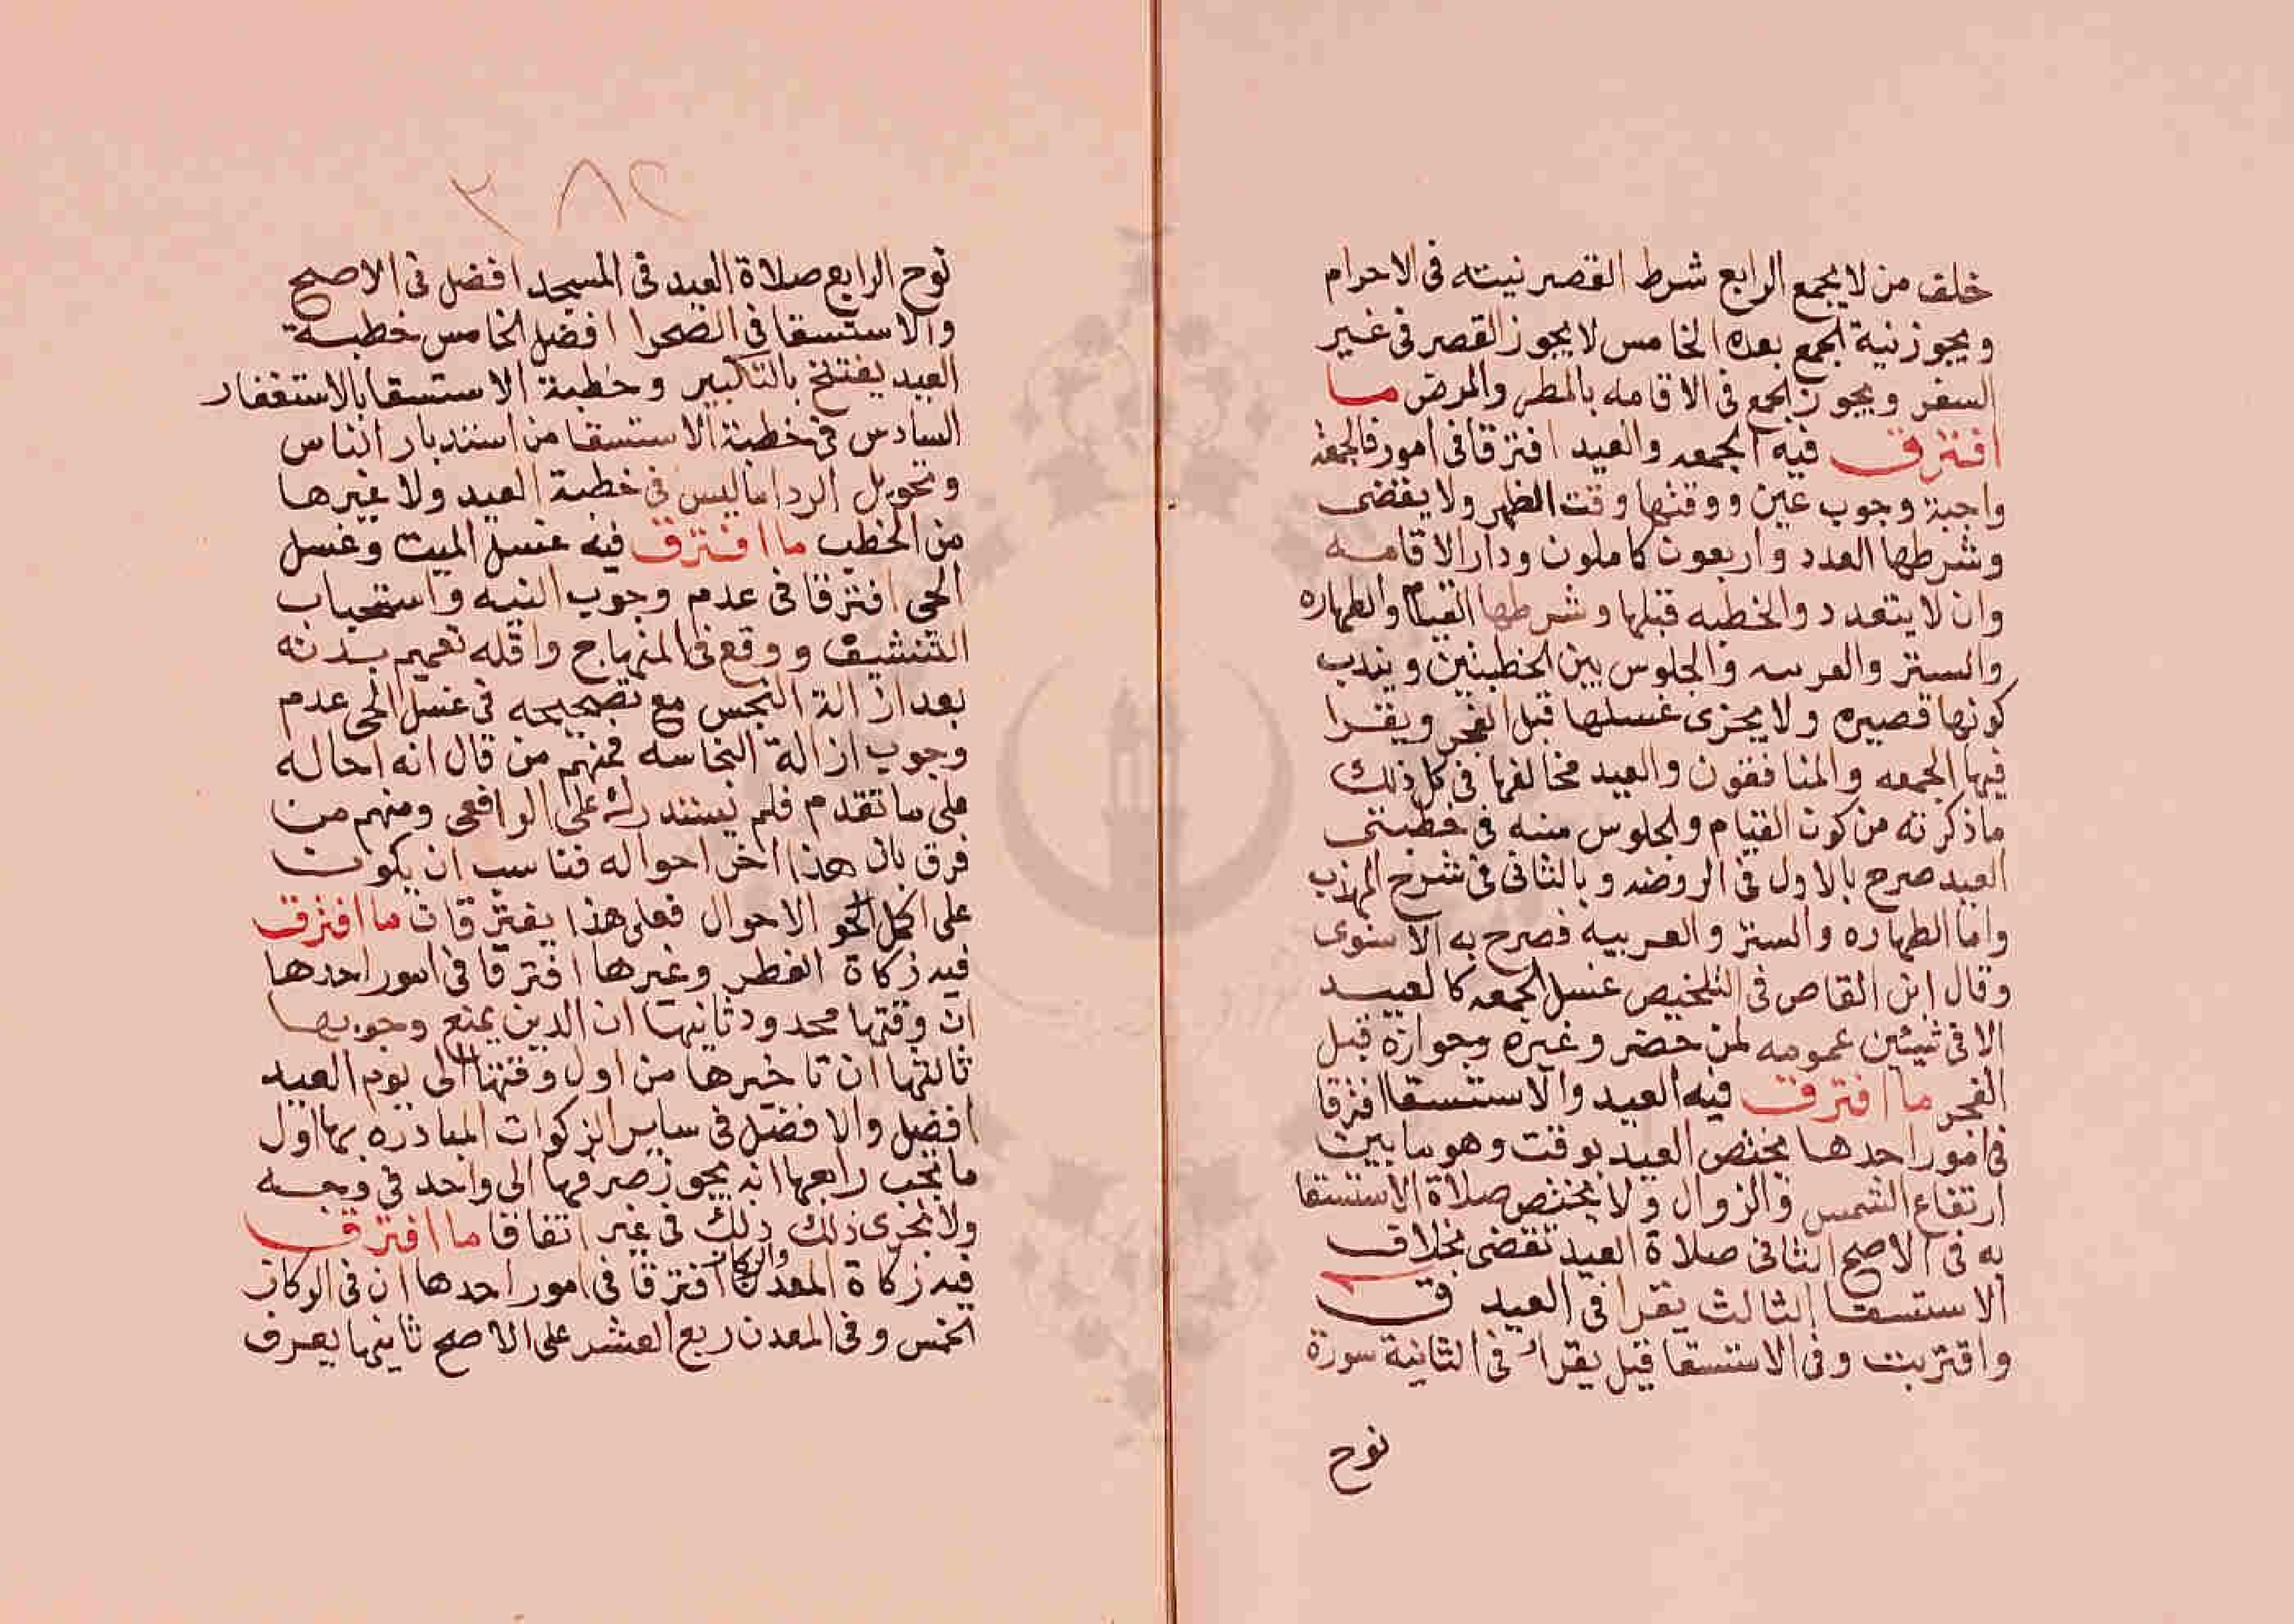 خلف من لا يجمع الرابع شرط القصر نيته فى الاحرام
ويجوز نية الجمع بعده الخامس لا يجوز القصر فى غير
السفر ويجوز الجمع فى الاقامه بالمطر والمرض ما
افترق فيه الجمعه والعيد افترقا فى امور فالجمعة
واجبة وجوب عين ووقتها وقت الظهر ولا يقضى
وشرطها العدد واربعون كاملون ودار الاقامه
وان لا يتعدد والخطبه قبلها وشرطها القيام والطهاره
والستر والعربيه والجلوس بين الخطبتين ويندب
كونها قصيره ولا يجزى غسلها قبل الفجر ويقرا
فيها الجمعه والمنافقون والعيد مخالفها فى كل ذلك
ماذكرته من كون القيام والجلوس سنه فى خطبتى
العيد صرح بالاول فى الروضه وبالثانى فى شرح المهذب
واما الطهاره والستر والعربيه فصرح به الاسنوى
وقال ابن القاص فى التلخيص غسل الجمعه كالعيد
الا فى شيئين عمومه لمن حضر وغيره وجوازه قبل
الفجر ما افترق فيه العيد والاستسقا افترقا
فى امور احدها يختص العيد بوقت وهو ما بين
ارتفاع الشمس والزوال ولا يختص صلاة الاستسقا
به فى الاصح الثانى صلاة العيد تقضى بخلاف
الاستسقا الثالث يقرا فى العيد ق
واقتربت وفى الاستسقا قيل يقرا فى الثانية سورة
نوح
٢٨٢
نوح الرابع صلاة العيد فى المسجد افضل فى الاصح
والاستسقا فى الصحرا افضل الخامس خطبة
العيد يفتتح بالتكبير وخطبة الاستسقا بالاستغفار
السادس فى خطبة الاستسقا من استدبار الناس
وتحويل الردا ما ليس فى خطبة العيد ولا غيرها
من الخطب ما افترق فيه غسل الميت وغسل
الحى افترقا فى عدم وجوب النيه واستحباب
التنشيف ووقع فى المنهاج واقله تعميم بدنه
بعد ازالة النجس مع تصحيحه فى غسل الحى عدم
وجوب ازالة النجاسه فمنهم من قال انه احاله
على ما تقدم فلم يستدرك على الرافعى ومنهم من
فرق بان هذا اخر احواله فناسب ان يكون
على اكمل الاحوال فعلى هذا يفترقان ما افترق
فيه زكاة الفطر وغيرها افترقا فى امور احدها
ان وقتها محدود ثانيها ان الدين يمنع وجوبها
ثالثها ان تاخيرها من اول وقتها الى يوم العيد
افضل والافضل فى ساير الزكوات المبادره بها اول
ما تجب رابعها انه يجوز صرفها الى واحد فى وجه
ولا يجزى ذلك ذلك فى غير اتفاقا ما افترق
فيه زكاة المعدن والركاز افترقا فى امور احدها ان فى الركاز
الخمس وفى المعدن ربع العشر على الاصح ثانيها يصرف